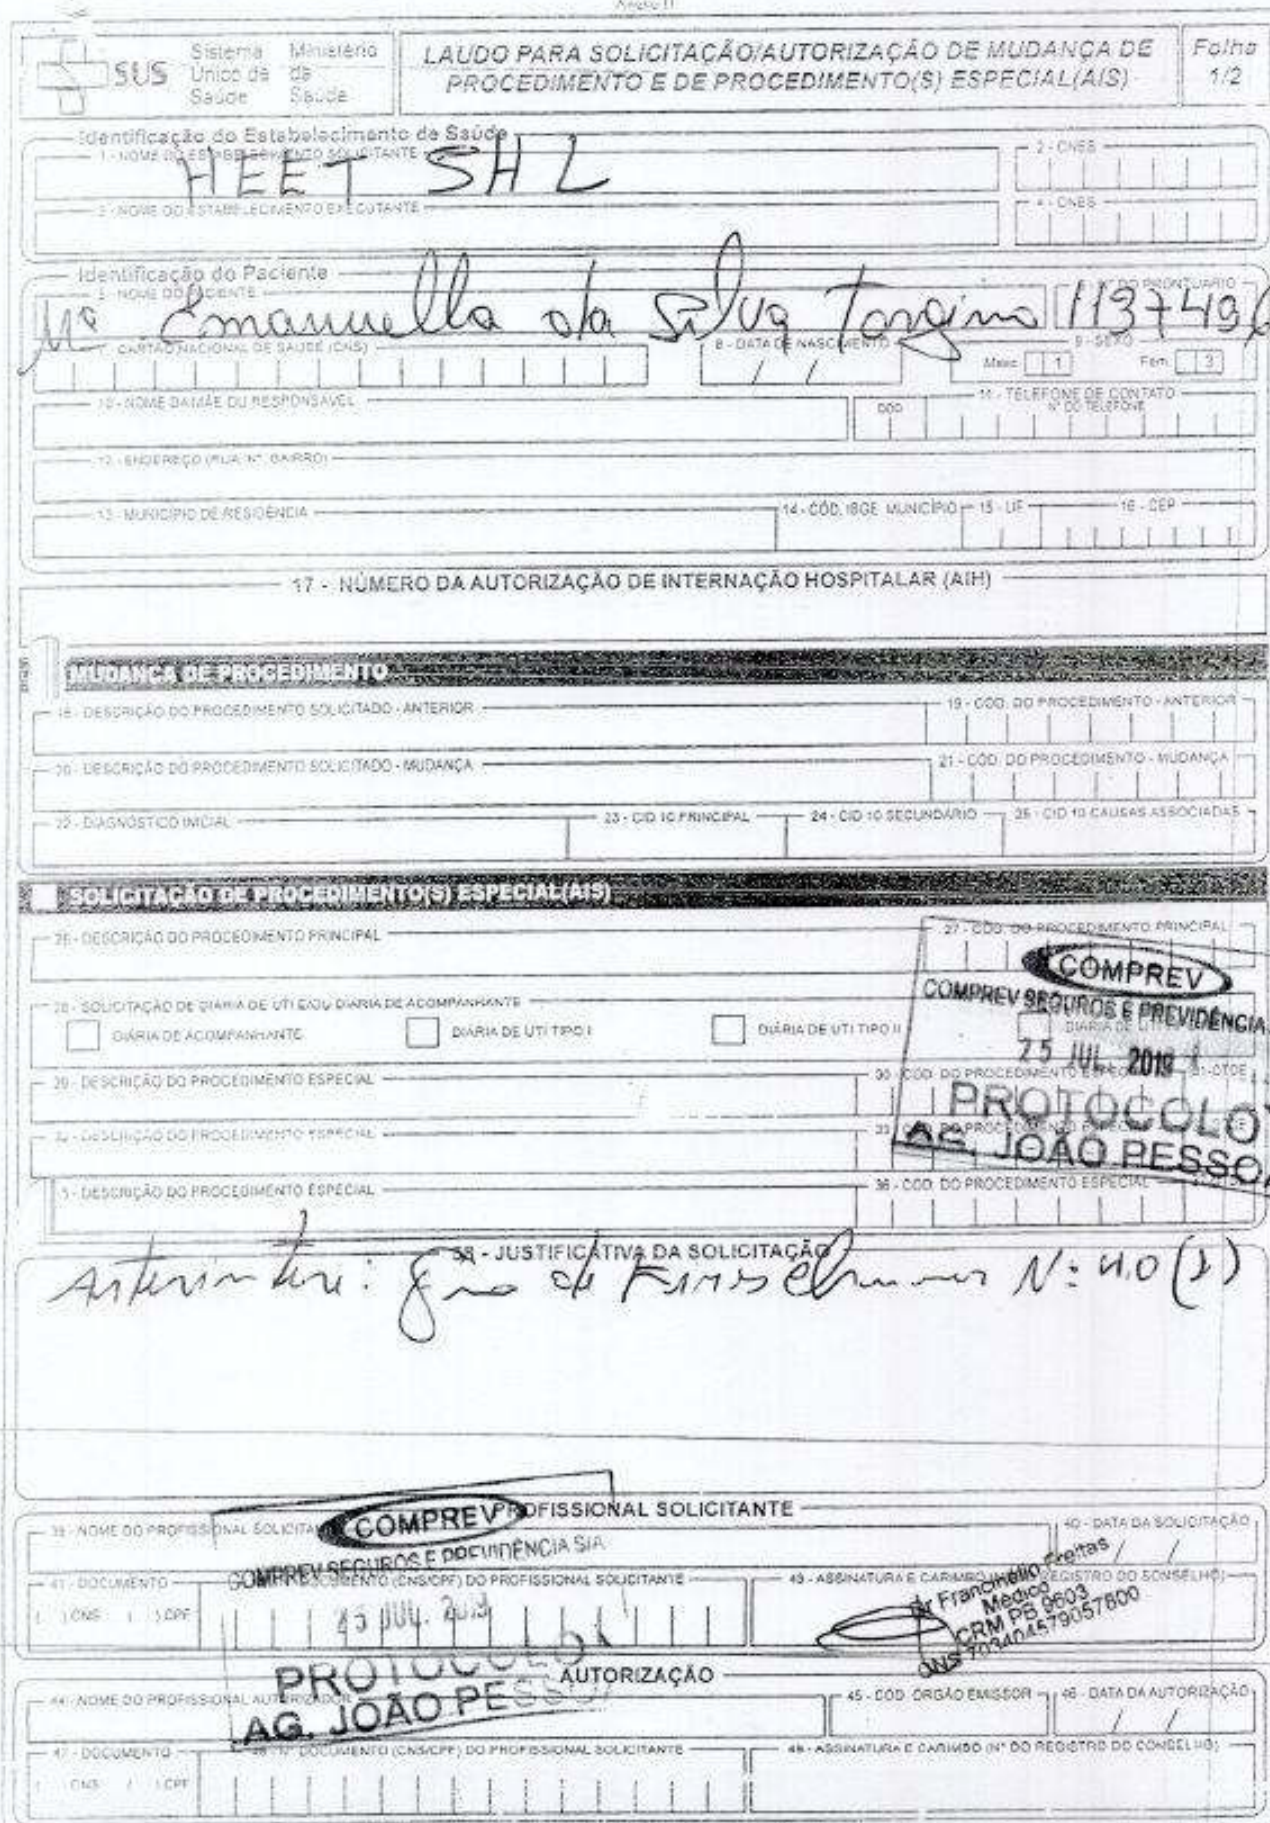 Anexo II
SUS
Sistema Único de Saúde
Ministério da Saúde
LAUDO PARA SOLICITAÇÃO/AUTORIZAÇÃO DE MUDANÇA DE
PROCEDIMENTO E DE PROCEDIMENTO(S) ESPECIAL(AIS)
Folha
1/2
Identificação do Estabelecimento de Saúde
1 - NOME DO ESTABELECIMENTO SOLICITANTE
2 - CNES
HEET SHL
3 - NOME DO ESTABELECIMENTO EXECUTANTE
4 - CNES
Identificação do Paciente
5 - NOME DO PACIENTE
6 - Nº DO PRONTUÁRIO
Mª Emanuella da Silva Torgino 1137496
7 - CARTÃO NACIONAL DE SAÚDE (CNS)
8 - DATA DE NASCIMENTO
9 - SEXO
Masc. 1 Fem. 3
10 - NOME DA MÃE OU RESPONSÁVEL
11 - TELEFONE DE CONTATO
DDD
Nº DO TELEFONE
12 - ENDEREÇO (RUA, Nº, BAIRRO)
13 - MUNICÍPIO DE RESIDÊNCIA
14 - CÓD. IBGE MUNICÍPIO
15 - UF
16 - CEP
17 - NÚMERO DA AUTORIZAÇÃO DE INTERNAÇÃO HOSPITALAR (AIH)
MUDANÇA DE PROCEDIMENTO
18 - DESCRIÇÃO DO PROCEDIMENTO SOLICITADO - ANTERIOR
19 - CÓD. DO PROCEDIMENTO - ANTERIOR
20 - DESCRIÇÃO DO PROCEDIMENTO SOLICITADO - MUDANÇA
21 - CÓD. DO PROCEDIMENTO - MUDANÇA
22 - DIAGNÓSTICO INICIAL
23 - CID 10 PRINCIPAL
24 - CID 10 SECUNDÁRIO
25 - CID 10 CAUSAS ASSOCIADAS
SOLICITAÇÃO DE PROCEDIMENTO(S) ESPECIAL(AIS)
26 - DESCRIÇÃO DO PROCEDIMENTO PRINCIPAL
27 - CÓD. DO PROCEDIMENTO PRINCIPAL
COMPREV
COMPREV SEGUROS E PREVIDÊNCIA
28 - SOLICITAÇÃO DE DIÁRIA DE UTI E/OU DIÁRIA DE ACOMPANHANTE
DIÁRIA DE ACOMPANHANTE
DIÁRIA DE UTI TIPO I
DIÁRIA DE UTI TIPO II
DIÁRIA DE UTI
25 JUL. 2019
29 - DESCRIÇÃO DO PROCEDIMENTO ESPECIAL
30 - CÓD. DO PROCEDIMENTO ESPECIAL
31 - QTDE
PROTOCOLO
32 - DESCRIÇÃO DO PROCEDIMENTO ESPECIAL
33 - CÓD. DO PROCEDIMENTO ESPECIAL
AG. JOÃO PESSOA
5 - DESCRIÇÃO DO PROCEDIMENTO ESPECIAL
36 - CÓD. DO PROCEDIMENTO ESPECIAL
38 - JUSTIFICATIVA DA SOLICITAÇÃO
de Nº 4.0 (1)
PROFISSIONAL SOLICITANTE
COMPREV
39 - NOME DO PROFISSIONAL SOLICITANTE
40 - DATA DA SOLICITAÇÃO
COMPREV SEGUROS E PREVIDÊNCIA S/A
41 - DOCUMENTO
DOCUMENTO (CNS/CPF) DO PROFISSIONAL SOLICITANTE
43 - ASSINATURA E CARIMBO (Nº DO REGISTRO DO CONSELHO)
( ) CNS ( ) CPF
25 JUL. 2019
Dr Francinélio Freitas
Médico
CRM PB 9603
CNS 703404579057800
PROTOCOLO
AG. JOÃO PESSOA
AUTORIZAÇÃO
44 - NOME DO PROFISSIONAL AUTORIZADOR
45 - CÓD. ÓRGÃO EMISSOR
46 - DATA DA AUTORIZAÇÃO
47 - DOCUMENTO
48 - Nº DOCUMENTO (CNS/CPF) DO PROFISSIONAL SOLICITANTE
49 - ASSINATURA E CARIMBO (Nº DO REGISTRO DO CONSELHO)
( ) CNS ( ) CPF